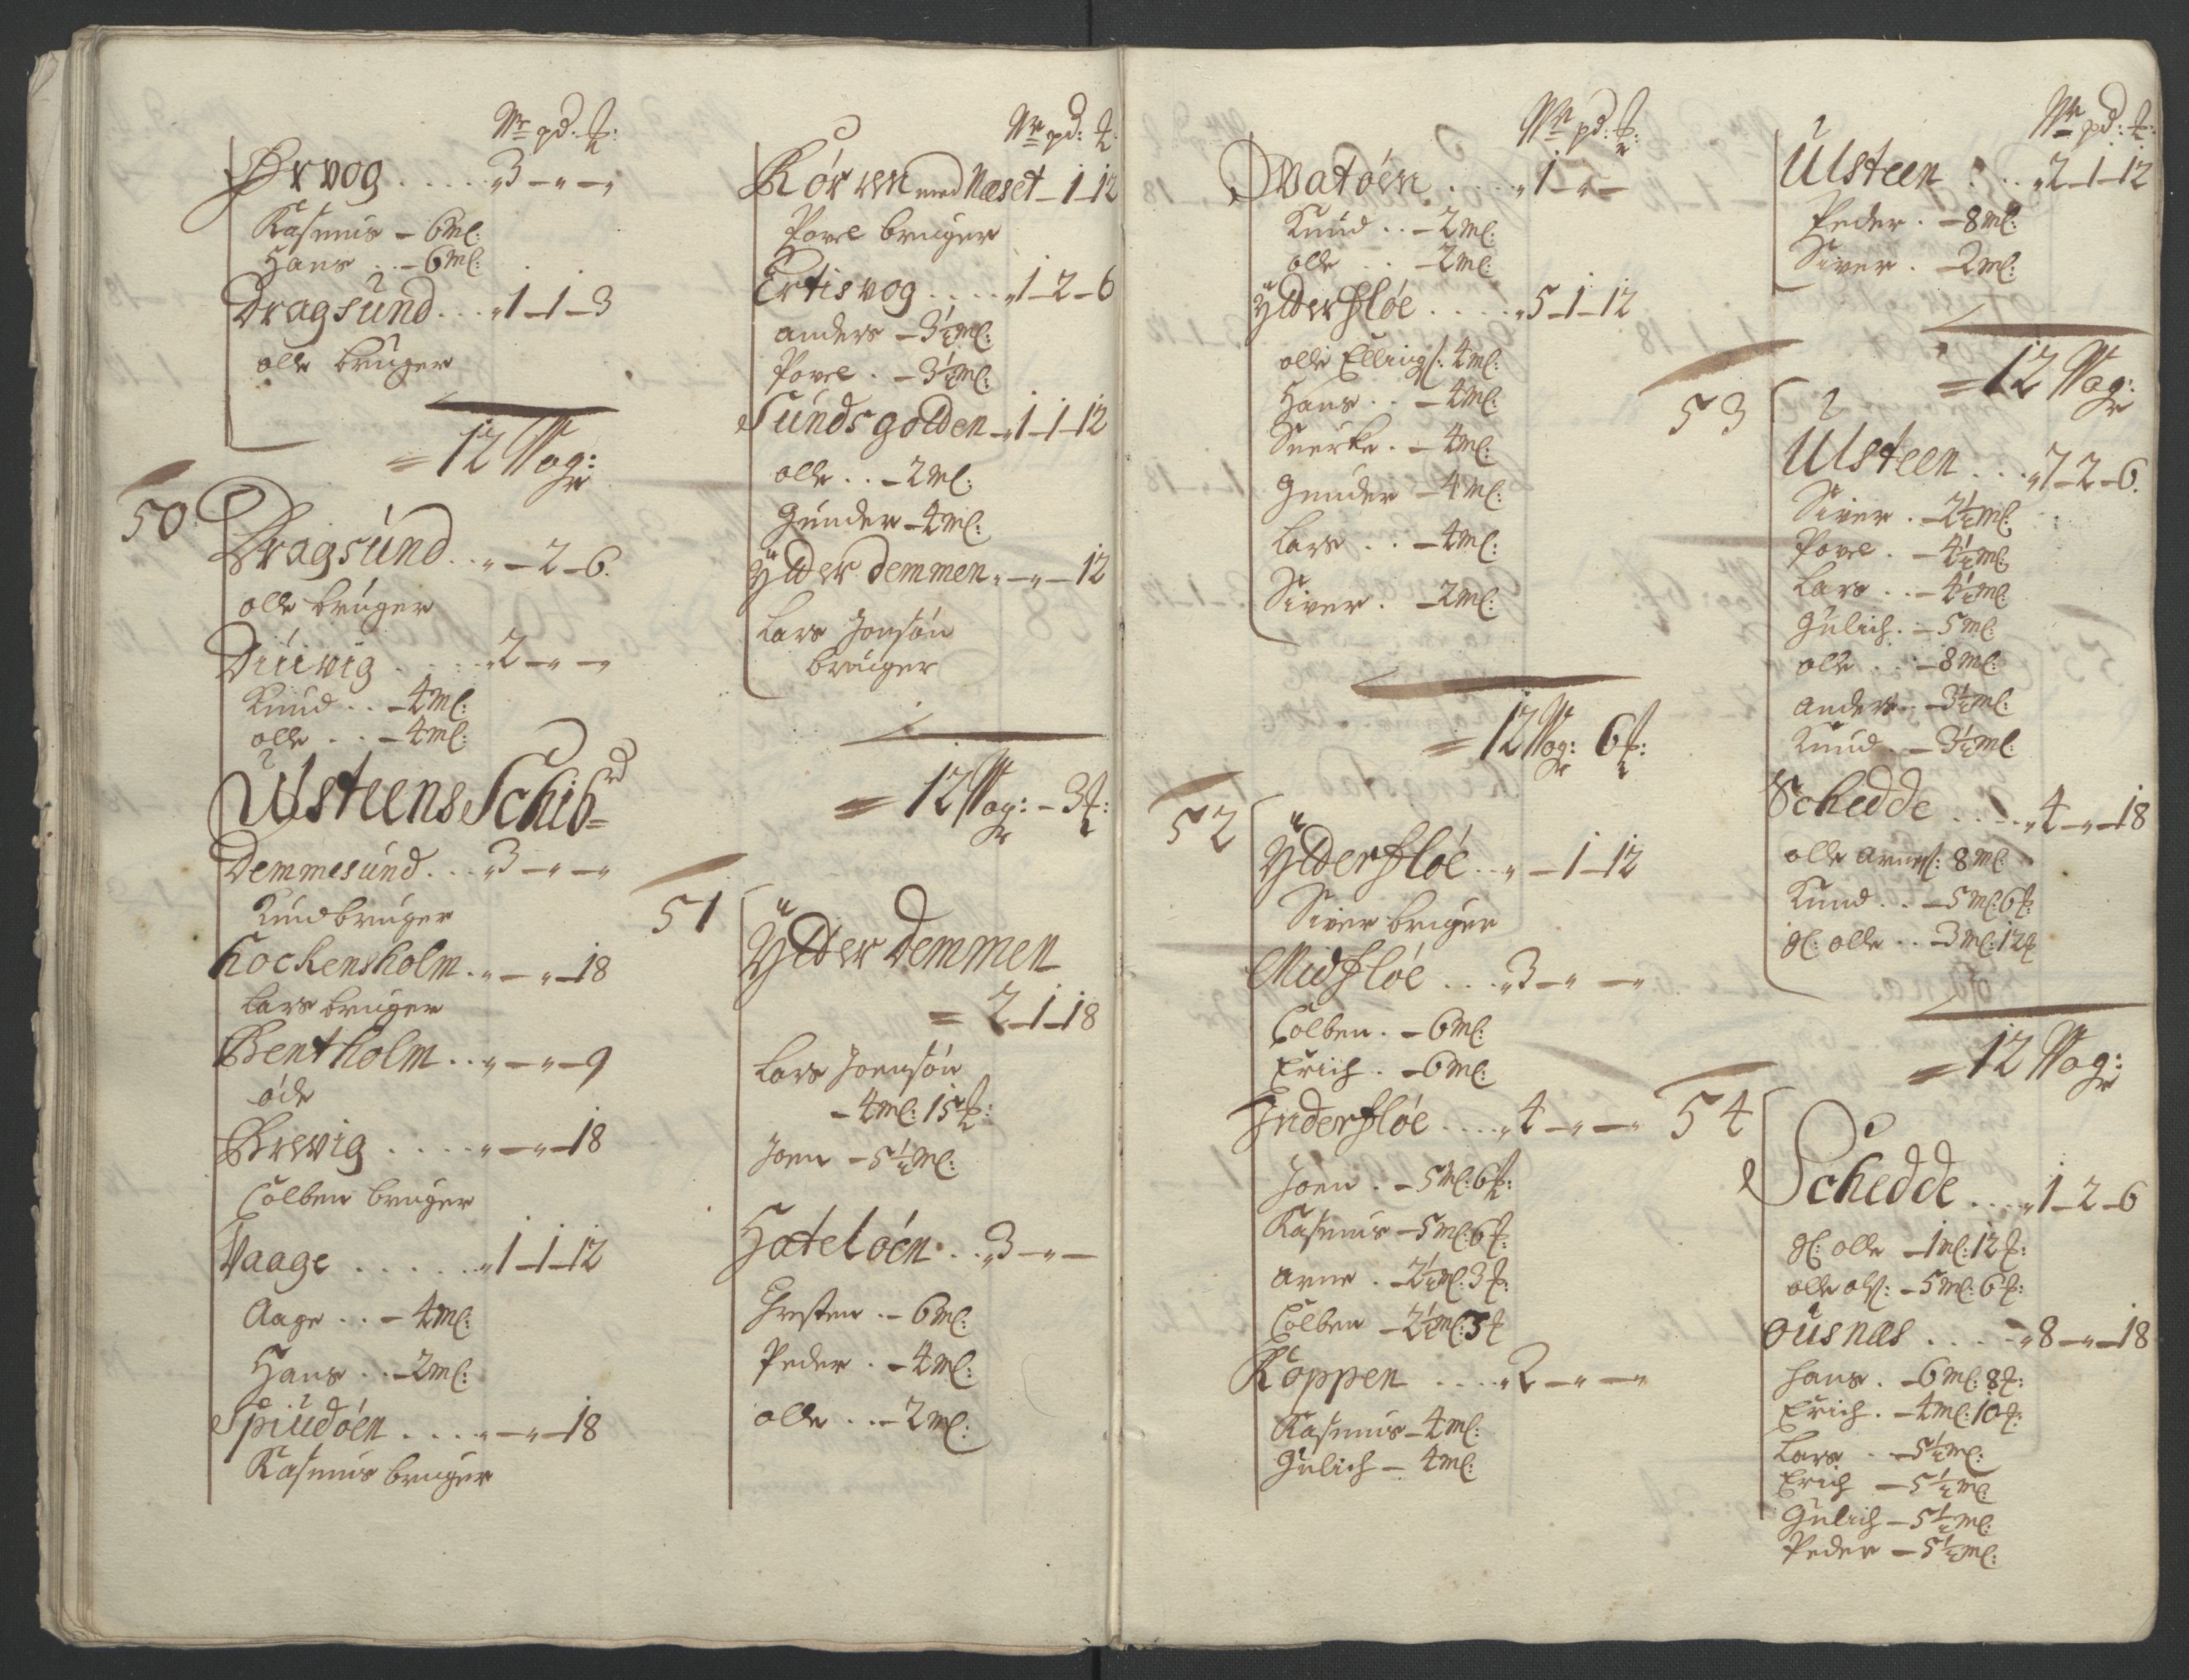 Wr pd: ℔:
Ørvog . . . . . „ 3 – „ – „
Rasmus – 6 ml:
Hans . . – 6 ml:
Dragsund . . . „ 1 – 1 – 3
olle bruger
= 12 Wog:r
50
Dragsund . . „ – 2 – 6.
olle bruger
Diuvig . . . . „ 2 – „ – „
Knud . . – 4 ml:
olle . . – 4 ml:
Ulsteens Schibrd
Demmesund . . . „ 3 – „ – „
Knud bruger
Kockensholm . „ – „ – 18
Lars bruger
Bentholm . . „ – „ – 9
öde
Brevig . . . . „ – „ – 18
Colben bruger
Vaage . . . . . „ 1 – 1 – 12
Aage . . – 4 ml:
Hans . . – 2 ml:
Spiudöen . . . . „ – „ – 18
Rasmus bruger
Wr pd: ℔:
Körven med Næset – 1 – 12
Povel bruger
Ertisvog . . . . „ 1 – 2 – 6
anders – 3½ ml:
Povel . – 3½ ml:
Sundsgolden – „ 1 – 1 – 12
olle . . – 2 ml:
Gunder – 4 ml:
Ÿtter demmen „ – „ – 12
Lars Jonsön
bruger
= 12 Wog:r – 3 ℔:
51
Ÿtter demmen
= 2 – 1 – 18
Lars Joensön
– 4 ml: 15 ℔:
Joen – 5½ ml:
Hatelöen . . „ 3 – „ –
Chresten . – 6 ml:
Peder . – 4 ml:
olle . . – 2 ml:
Wr pd: ℔:
Svatöen . . . . „ 1 – „ –
Knud . . – 2 ml:
olle . . – 2 ml:
Ÿtterflöe . . . . „ 5 – 1 – 12
olle Ellings: 4 ml:
Hans . . – 4 ml:
Suerke . – 4 ml:
Gunder – 4 ml:
Lars . . – 4 ml:
Siver . – 2 ml:
= 12 Wog:r 6 ℔:
52
Ÿtterflöe . . „ – 1 – 12
Siver bruger
Midflöe . . . „ 3 – „ – „
Colben . – 6 ml:
Erich . – 6 ml:
Inderflöe . . . . „ 4 – „ – „
Joen . – 5 ml: 6 ℔:
Rasmus – 5 ml: 6 ℔:
Arne . – 2½ ml: 3 ℔:
Colben – 2½ ml: 3 ℔
Röppen . . . . „ 2 – „ – „
Rasmus – 4 ml:
Gulich – 4 ml:
Wr pd: ℔:
Ulsteen . . . „ 2 – 1 – 12
Peder . – 8 ml:
Siver . – 2 ml:
= 12 Wog:r
53
Ulsteen . . . „ 7 – 2 – 6.
Siver . – 2½ ml:
Povel . – 4½ ml:
Lars . . – 4½ ml:
Gulich . – 5 ml:
olle . . – 8 ml:
Anders . – 3½ ml:
Knud . – 3½ ml:
Schedde . . . . „ 4 – „ – 18
olle Arnes: 8 ml:
Knud . . – 5 ml: 6 ℔:
gl: olle . . – 3 ml: 12 ℔
= 12 Wog:r
54
Schedde . . . . „ 1 – 2 – 6
gl: olle – 1 ml: 12 ℔:
olle ols: – 5 ml: 6 ℔:
ousnæs . . . . „ 8 – „ – 18
Hans . – 6 ml: 8 ℔:
Erich . – 4 ml: 10 ℔:
Lars . – 5½ ml:
Erich – 5½ ml:
Gulich – 5½ ml:
Peder – 5½ ml: